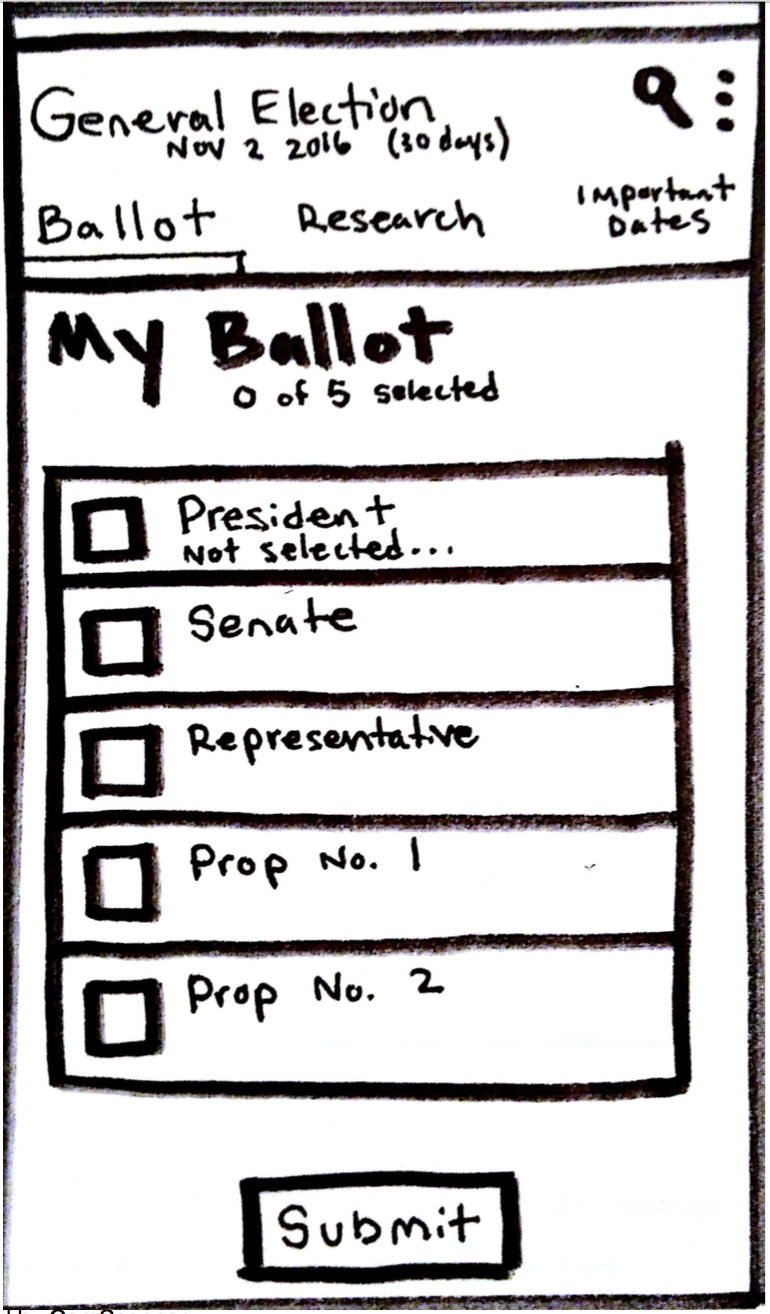 General Election
Nov 2 2016 (30 days)
Ballot
Research
Important
Dates
My Ballot
0 of 5 selected
President
Not selected...
Senate
Representative
Prop No. 1
Prop No. 2
Submit